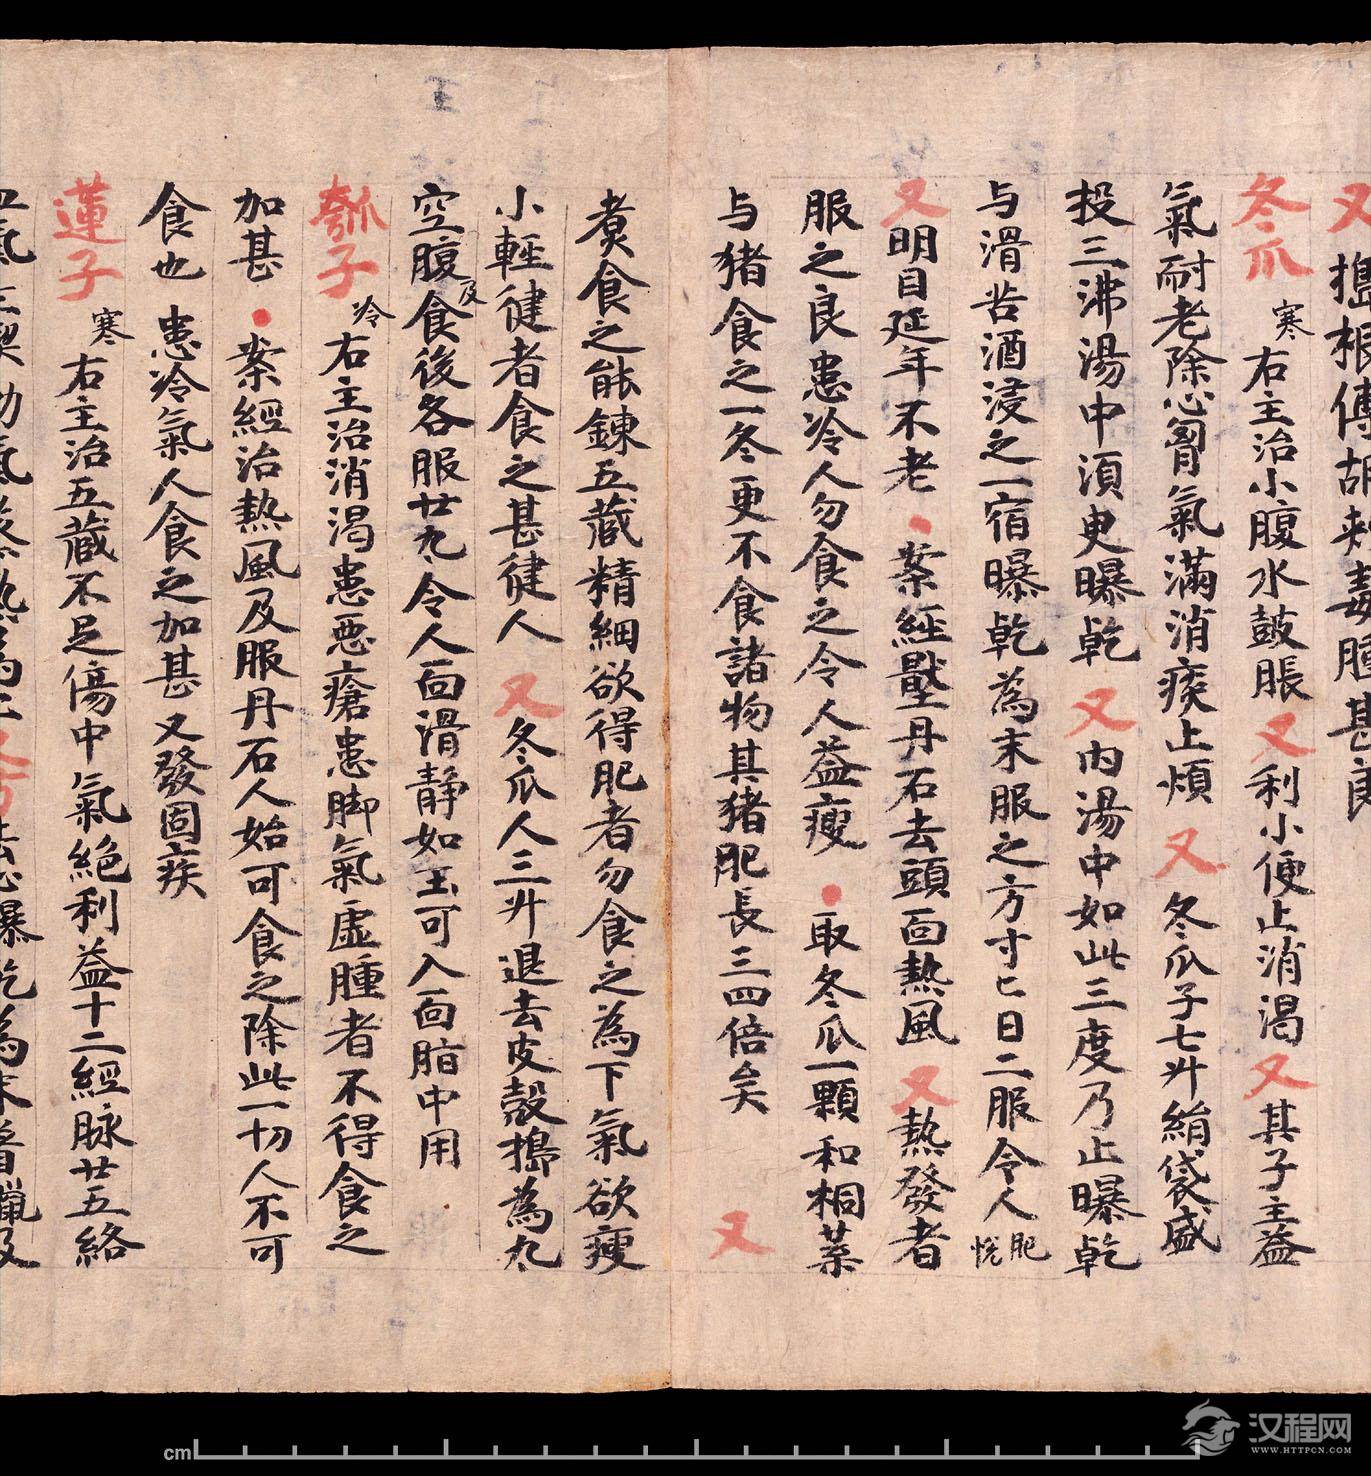 又搗根傅胡刺毒腫甚良
冬瓜寒右主治小腹水鼓脹又利小便止消渴又其子主益
氣耐老除心胷氣滿消痰止煩又冬瓜子七升絹袋盛
投三沸湯中須臾曝乾又內湯中如此三度乃止曝乾
与滑苦酒浸之一宿曝乾為末服之方寸匕日二服令人肥悅
又明目延年不老案經壓丹石去頭面熱風又熱發者
服之良患冷人勿食之令人益瘦取冬瓜一顆和桐葉
与猪食之一冬更不食諸物其猪肥長三四倍矣又
煑食之能鍊五藏精細欲得肥者勿食之為下氣欲瘦
小輕健者食之甚健人又冬瓜人三升退去皮殼搗為丸
空腹及食後各服廿丸令人面滑静如玉可入面脂中用
瓠子冷右主治消渴患惡瘡患脚氣虛腫者不得食之
加甚案經治熱風及服丹石人始可食之除此一切人不可
食也患冷氣人食之加甚又發固疾
蓮子寒右主治五藏不足傷中氣絶利益十二經脉廿五絡